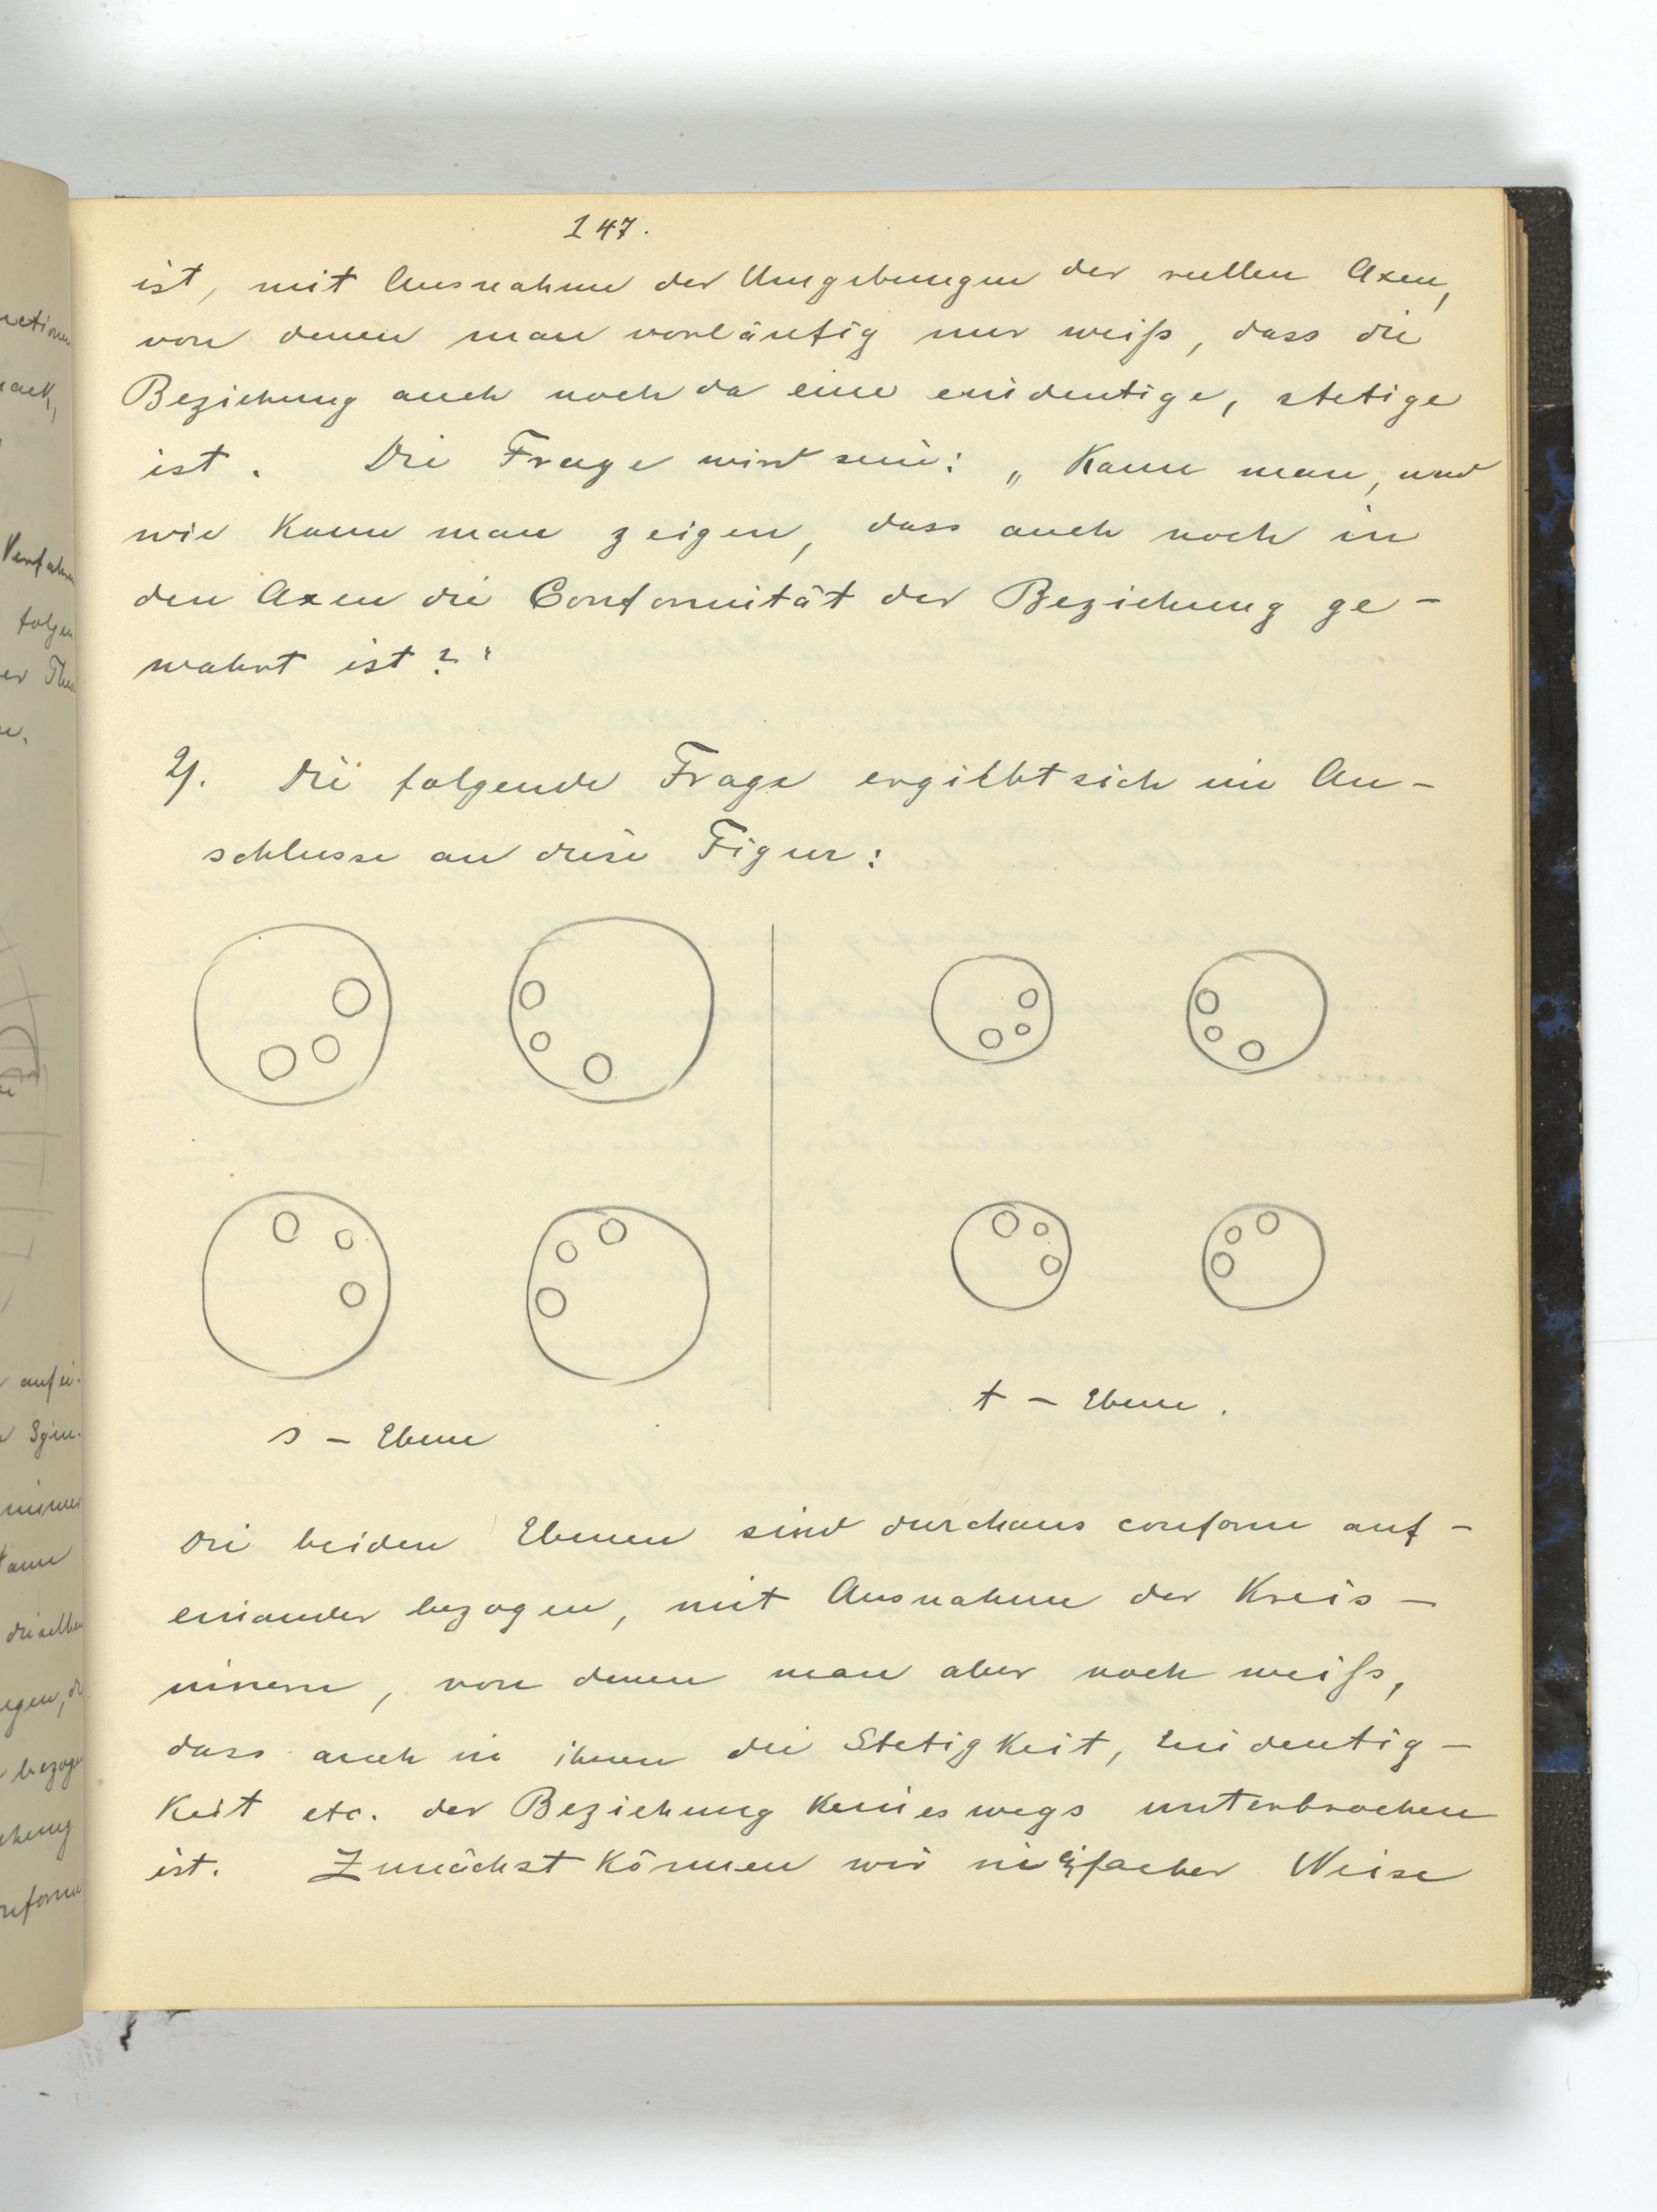 147.
ist, mit Ausnahme der Umgebungen der reellen Axen,
von denen man vorläufig nur weiß, dass die
Beziehung auch noch da eine eindeutige, stetige
ist. Die Frage wird sein: „Kann man, und
wie kann man zeigen, dass auch noch in
den Axen die Conformität der Beziehung ge-
wahrt ist?"
2). Die folgende Frage ergibt sich im An-
schlusse an diese Figur:
s - Ebene
t - Ebene.
Die beiden Ebenen sind durchaus conform auf-
einander bezogen, mit Ausnahme der Kreis-
innern, von denen man aber noch weiß,
dass auch in ihnen die Stetigkeit, Eindeutig-
keit etc. der Beziehung keineswegs unterbrochen
ist. Zunächst können wir in einfacher Weise